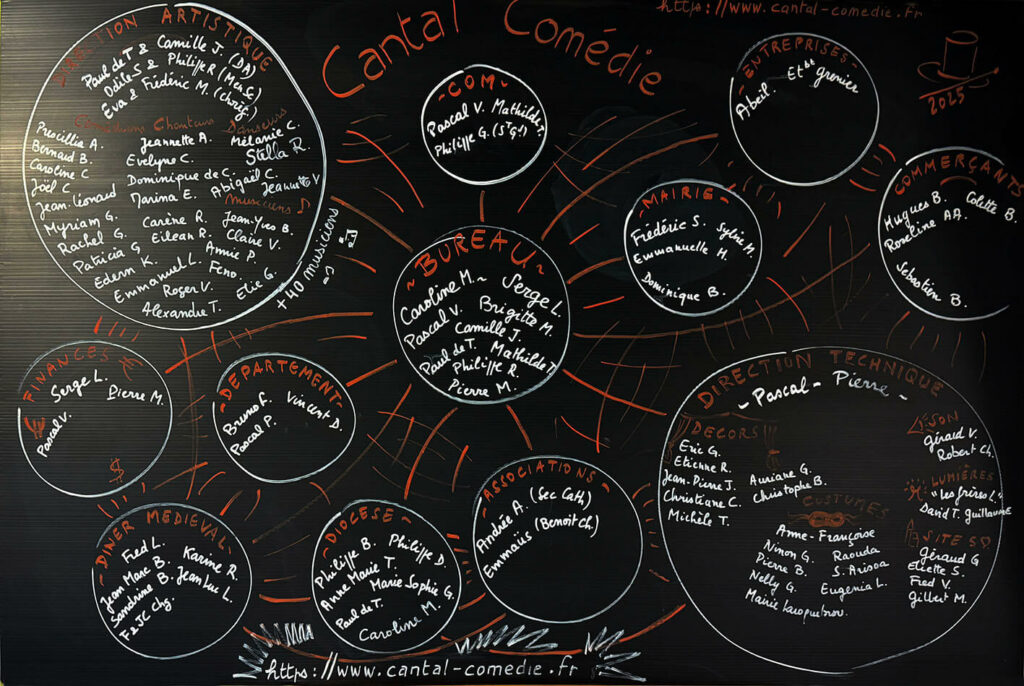 https://www.cantal-comedie.fr
Cantal Comédie
2025
DIRECTION ARTISTIQUE
Paul de T & Camille J. (DA)
Odile S & Philippe R (MenS)
Eva & Frédéric M. (chorég.)
Comédiens Chanteurs Danseurs
Prescillia A. Jeannette A. Mélanie C.
Bernard B. Evelyne C. Stella R.
Caroline C Dominique de C. Abigaïl C. Jeannette V
Joël C
Jean-Léonard Marina E. Musiciens
Myriam G. Carène R. Jean-Yves B.
Rachel G. Eilean R. Claire V.
Patricia G Annie P.
Edern K. Emmanuel L. Feno.
Roger V. Elie G.
Alexandre T.
+40 musiciens
COM
Pascal V. Mathilde T.
Philippe G. (S'G')
ENTREPRISES
Abeil. Ets grenier
MAIRIE
Frédéric S. Sylvie M.
Emmanuelle M.
Dominique B.
COMMERÇANTS
Hugues B. Colette B.
Roseline AA.
Sebastien B.
~ BUREAU ~
Caroline M. ~ Serge L.
Pascal V. Brigitte M.
Camille J.
Paul de T. Mathilde T
Philippe R.
Pierre M.
FINANCES
Serge L. Pierre M.
Pascal V.
$
- DEPARTEMENT -
Bruno F. Vincent D.
Pascal P.
- DINER MEDIEVAL -
Fred L. Karine R.
Jean Marc B. Jean Luc L.
Sandrine B.
F2JC Chg.
DIOCESE
Philippe B. Philippe D.
Anne Marie T.
Marie Sophie G.
Paul de T.
Caroline M.
ASSOCIATIONS
Andrée A. (Sec Cath)
Emmaüs (Benoît Ch.)
DIRECTION TECHNIQUE
- Pascal - Pierre -
DECORS
Eric G.
Etienne R.
Jean-Pierre J. Auriane G.
Christiane C. Christophe B.
Michèle T.
COSTUMES
Anne-Françoise
Ninon G. Raouda
Pierre B. S. Arissa
Nelly G. Eugenia L.
SON
Gérald V.
Robert Ch.
LUMIÈRES
"Les frères L."
David T. guillaume
SITE SP.
Géraud G
Eliette S.
Fred V.
Gilbert M.
https://www.cantal-comedie.fr